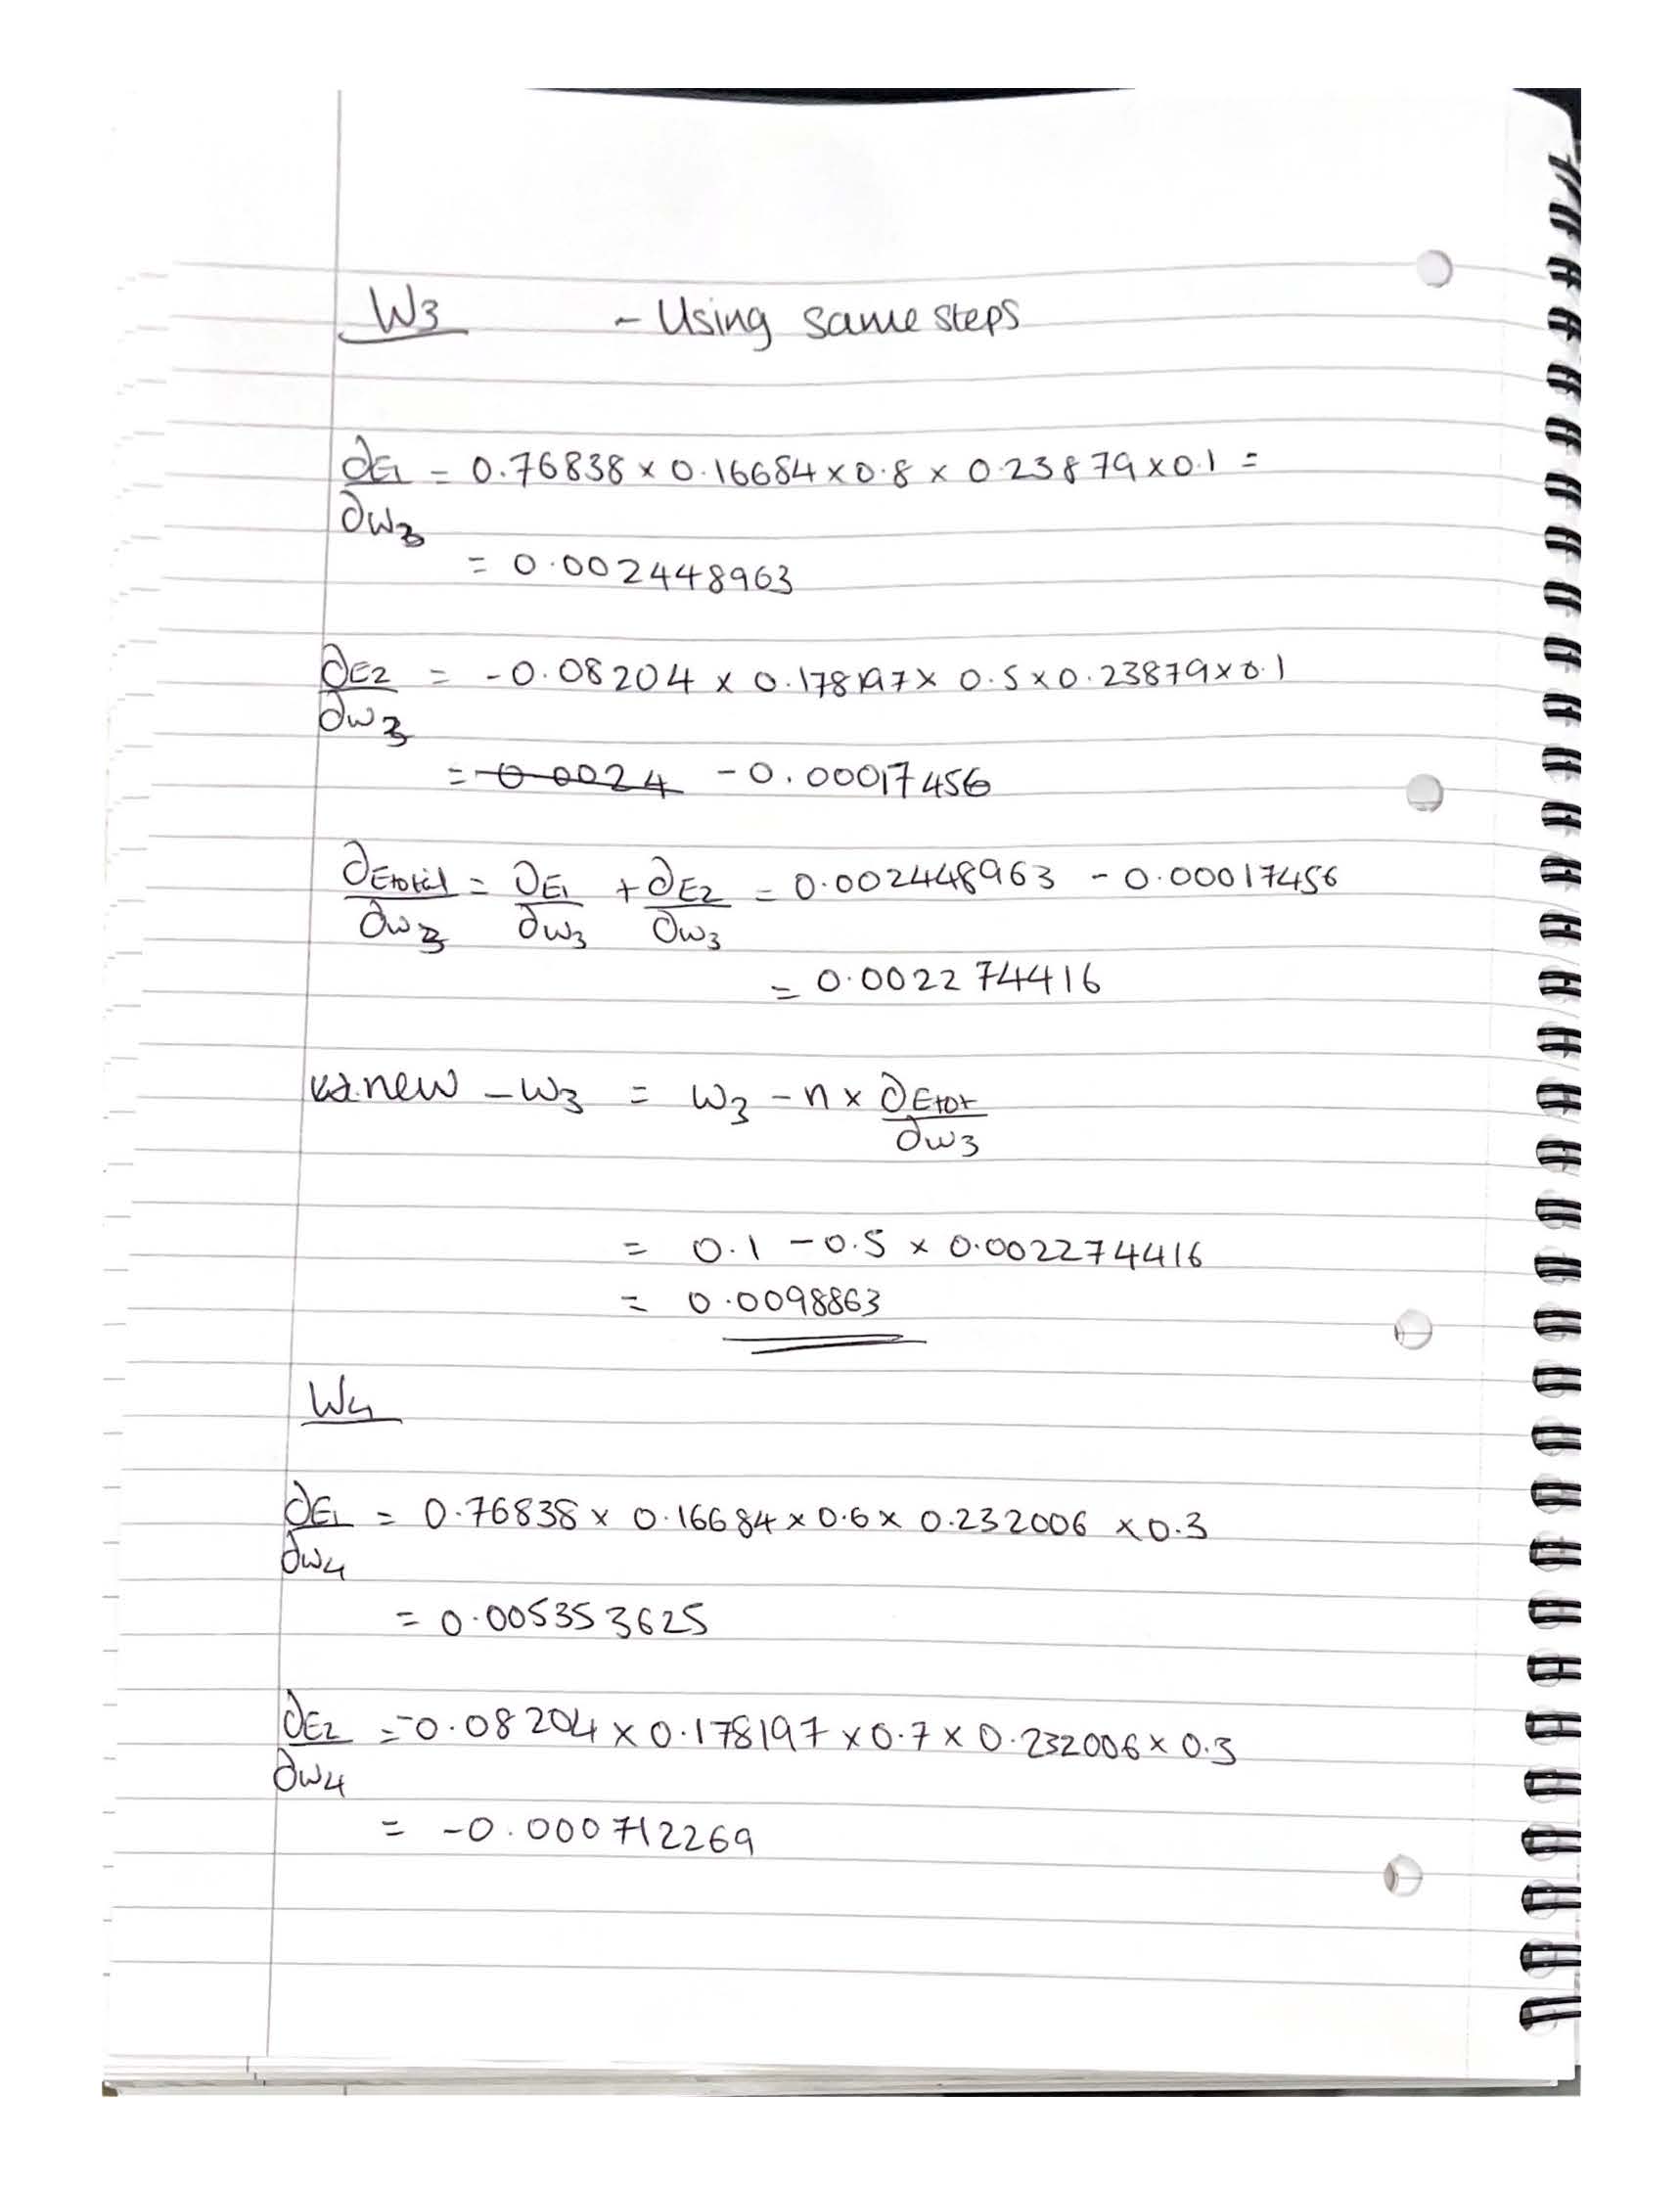 W3 - Using same steps
∂E1/∂w3 = 0.76838 × 0.16684 × 0.8 × 0.23879 × 0.1 =
= 0.002448963
∂E2/∂w3 = -0.08204 × 0.178197 × 0.5 × 0.23879 × 0.1
= -0.0024 -0.00017456
∂Etotal/∂w3 = ∂E1/∂w3 + ∂E2/∂w3 = 0.002448963 - 0.00017456
= 0.002274416
new - w3 = w3 - n × ∂Etot/∂w3
= 0.1 - 0.5 × 0.002274416
= 0.0098863
W4
∂E1/∂w4 = 0.76838 × 0.16684 × 0.6 × 0.232006 × 0.3
= 0.005353625
∂E2/∂w4 = -0.08204 × 0.178197 × 0.7 × 0.232006 × 0.3
= -0.000712269